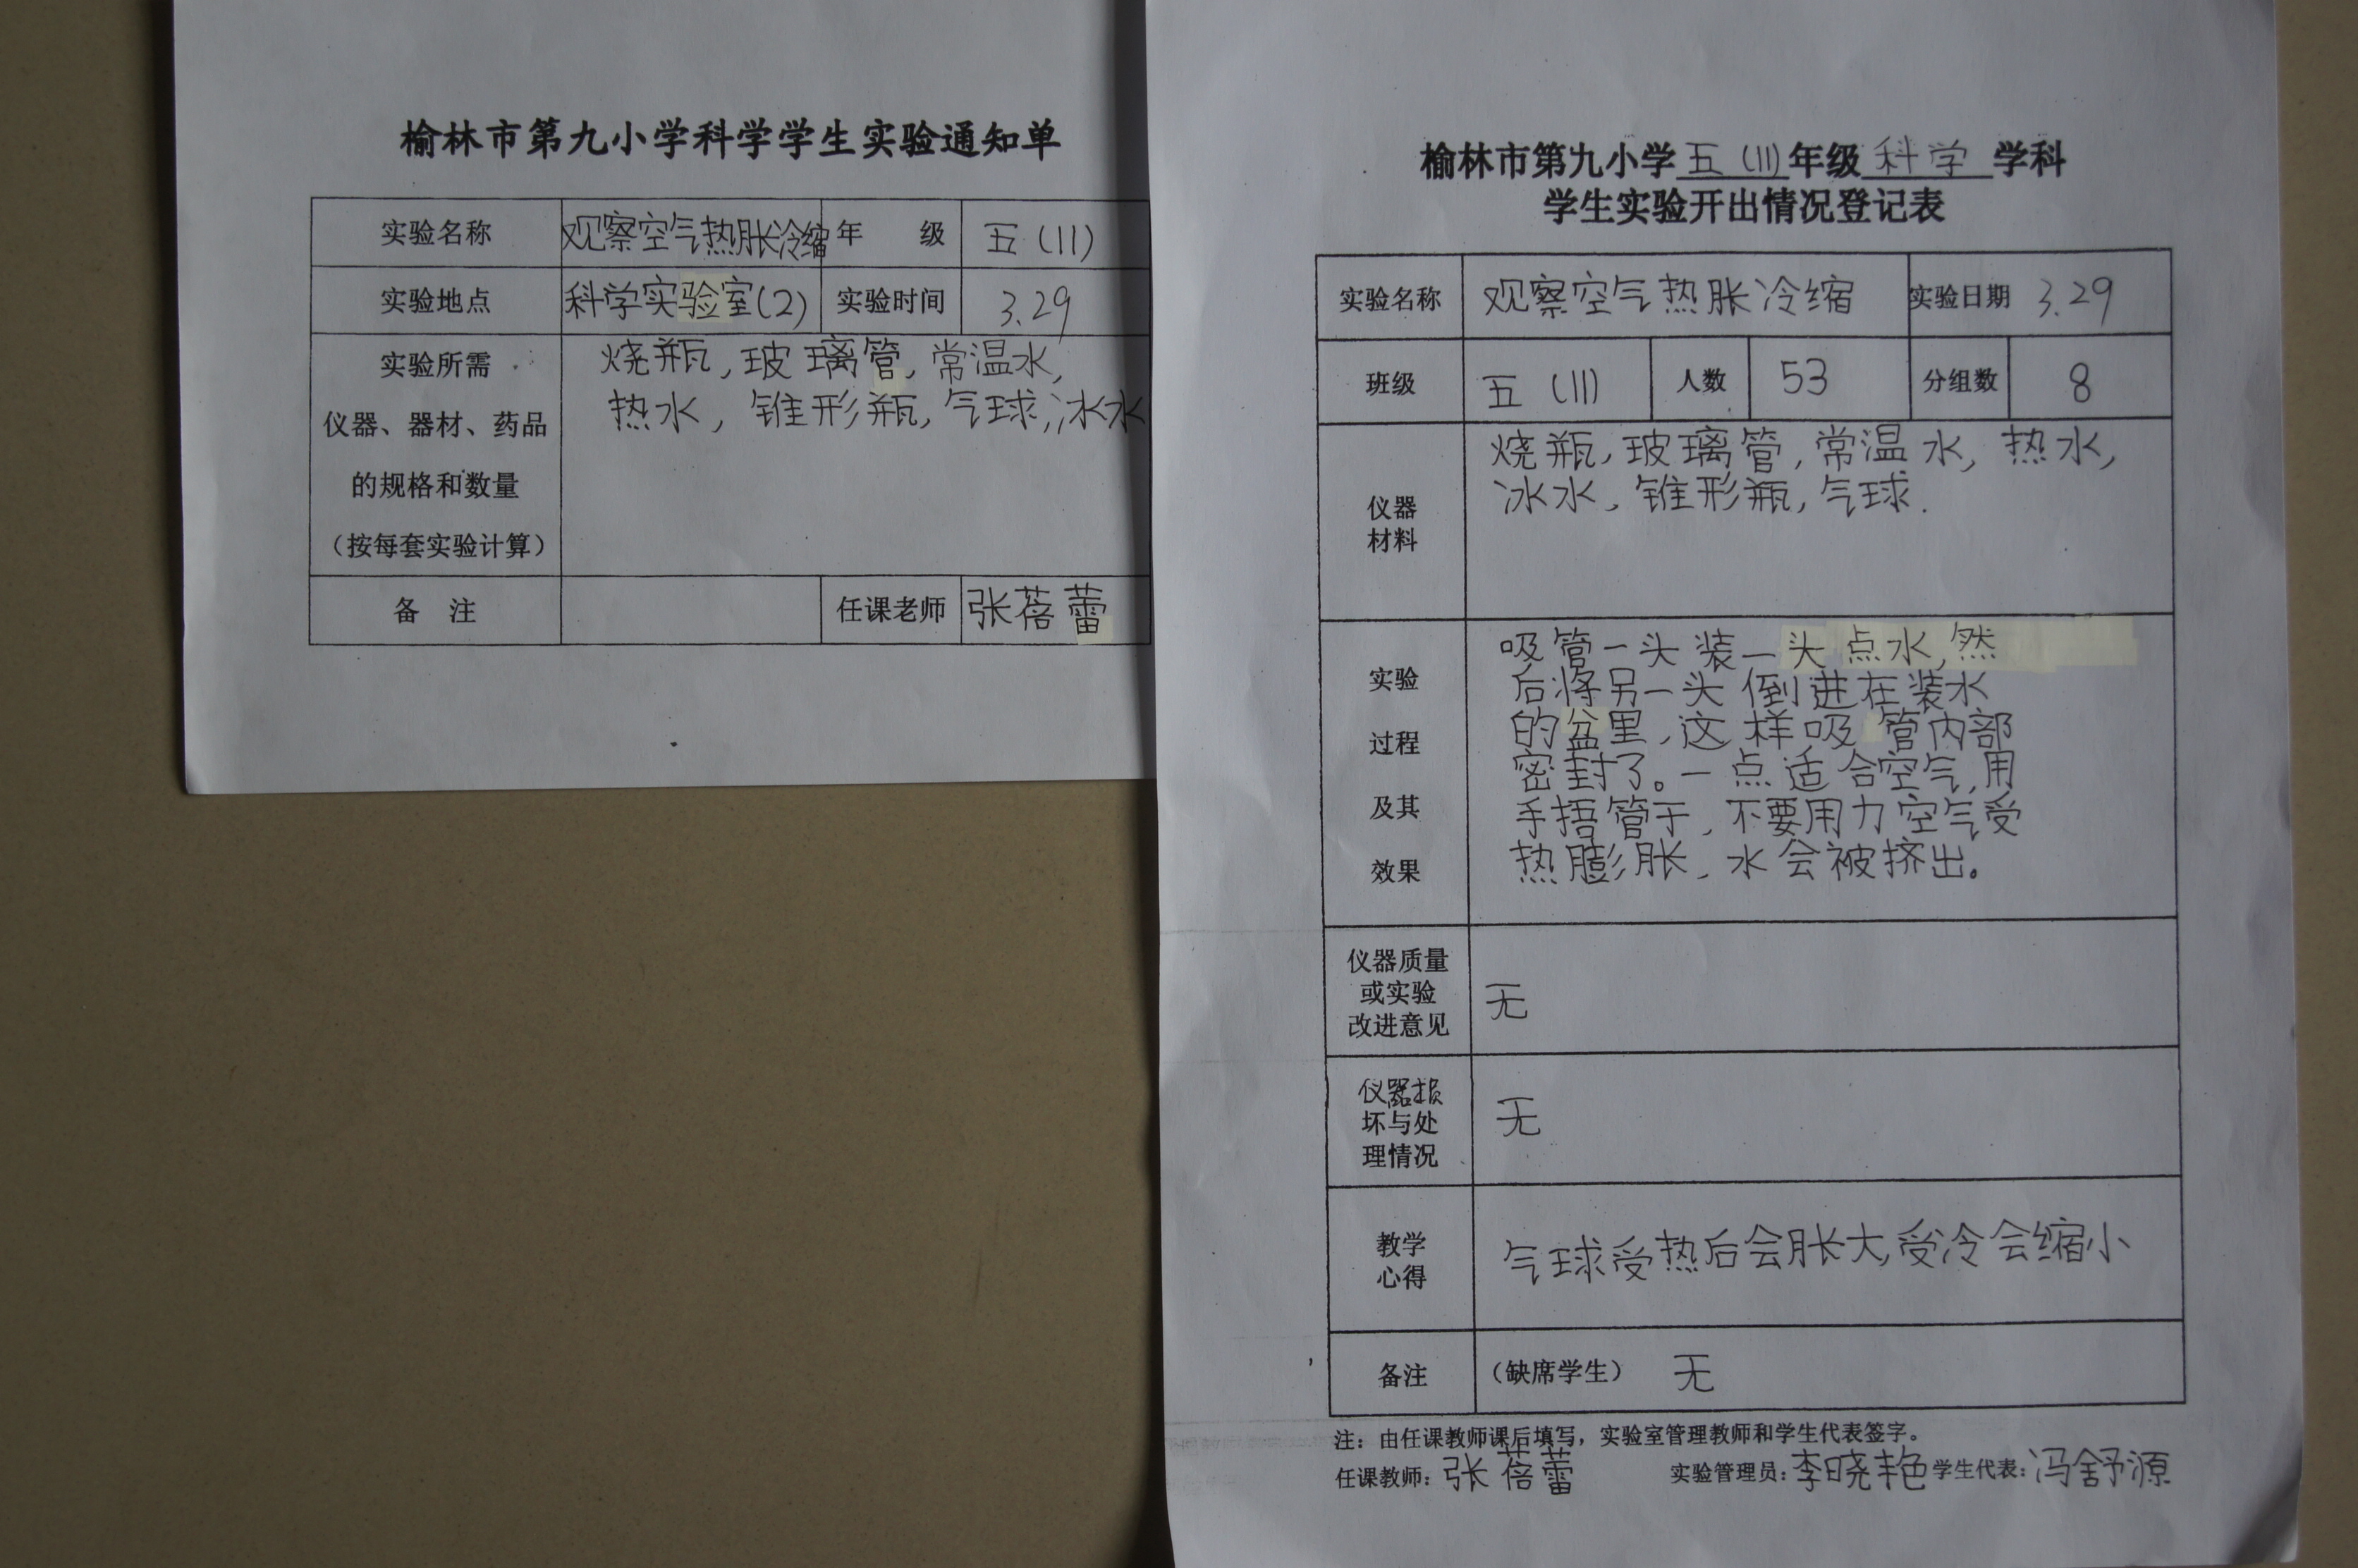 榆林市第九小学科学学生实验通知单
实验名称 观察空气热胀冷缩 年 级 五(11)
实验地点 科学实验室(2) 实验时间 3.29
实验所需
仪器、器材、药品
的规格和数量
(按每套实验计算)
烧瓶,玻璃管,常温水,
热水,锥形瓶,气球,冰水
备 注 任课老师 张蓓蕾
榆林市第九小学五(11)年级科学学科
学生实验开出情况登记表
实验名称 观察空气热胀冷缩 实验日期 3.29
班级 五(11) 人数 53 分组数 8
仪器
材料
烧瓶,玻璃管,常温水,热水,
冰水,锥形瓶,气球.
实验
过程
及其
效果
吸管一头装一头点水,然
后将另一头倒进在装水
的盆里,这样吸管内部
密封了。一点适合空气,用
手捂管于,不要用力空气受
热膨胀,水会被挤出。
仪器质量
或实验
改进意见
无
仪器损
坏与处
理情况
无
教学
心得
气球受热后会胀大,受冷会缩小
备注 (缺席学生) 无
注:由任课教师课后填写,实验室管理教师和学生代表签字。
任课教师:张蓓蕾 实验管理员:李晓艳 学生代表:冯舒源